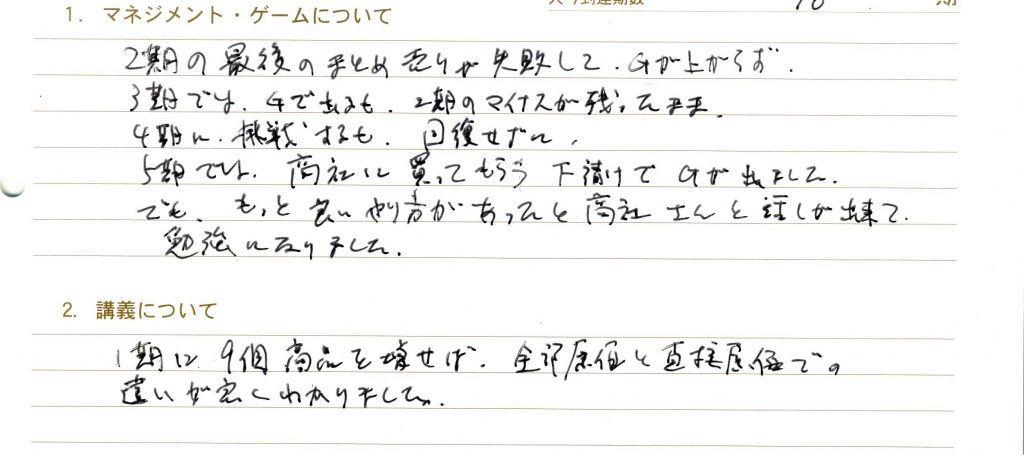 1. マネジメント・ゲームについて
2期の最後のまとめ売りが失敗して、Gが上がらず、
3期では、Gで出るも、2期のマイナスが残ったまま、
4期に、挑戦するも、回復せずに、
5期では、商社に買ってもらう下請けでGが出ました。
でも、もっと良いやり方があったと商社さんと話しが出来て、
勉強になりました。
2. 講義について
1期に9個商品を増せば、全部原価と直接原価での
違いが良くわかりました。